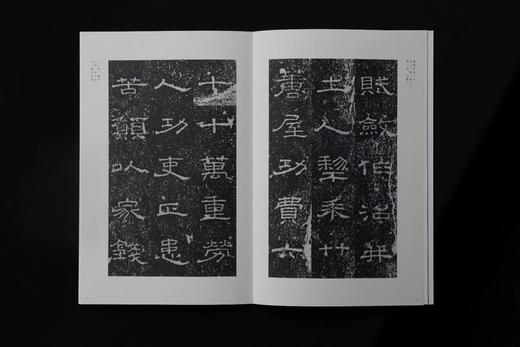 賦斂作治并
土人犂耒艸
蓑屋功費六
七十萬重勞
人功吏正患
苦願以家錢